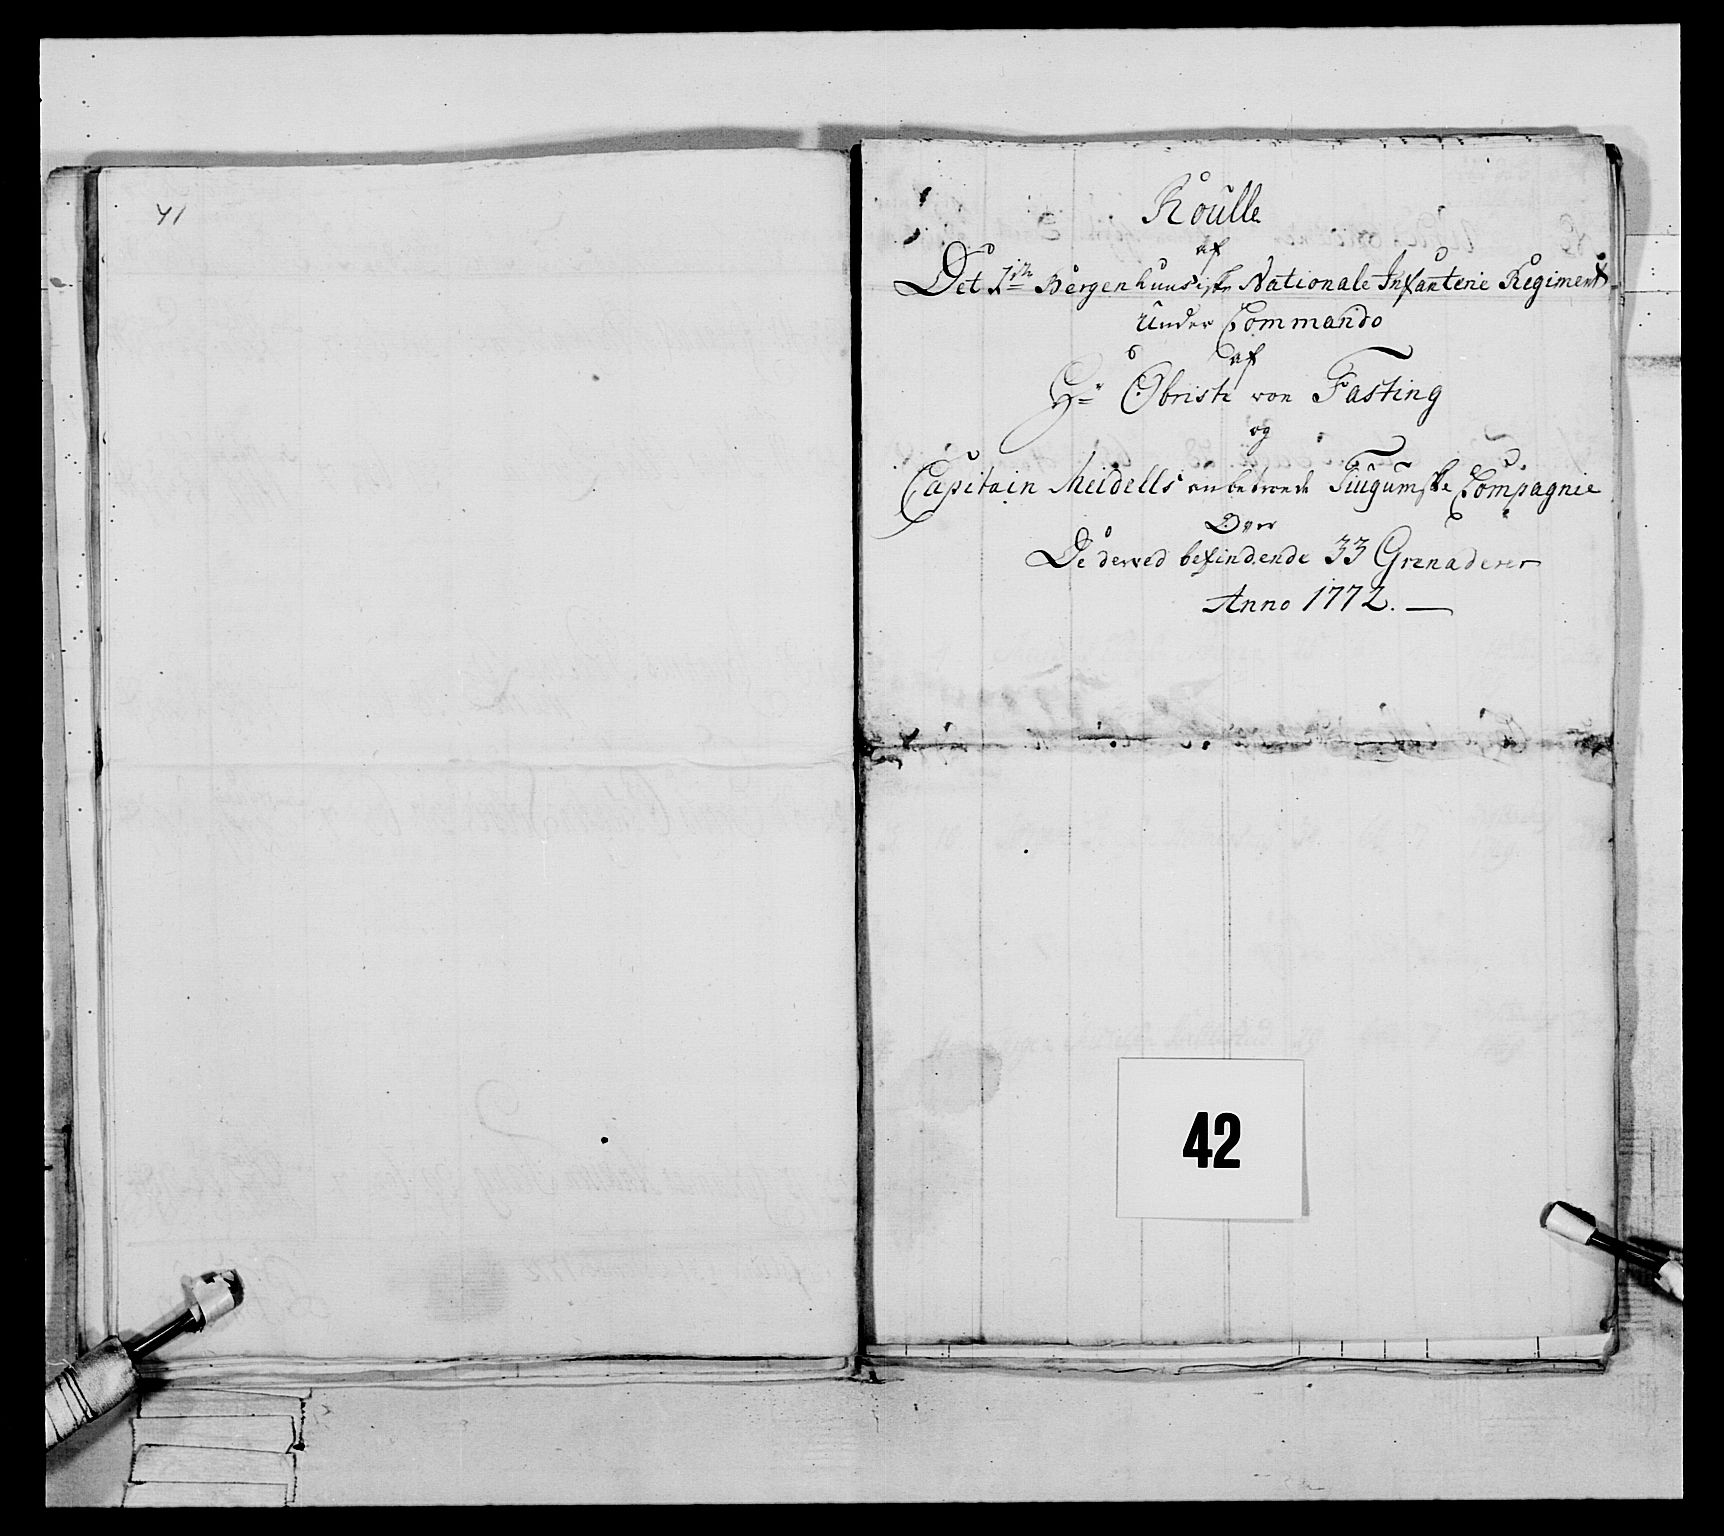 41
Roulle
af
Det 1ste Bergenhuusiske Nationale Infanterie Regiment
Under Commando
af
Hr Obriste von Fasting
og
Capitain Meidells anbetroede Compagnie
Over
De derved befindende 33 Grenaderer
Anno 1772.
42